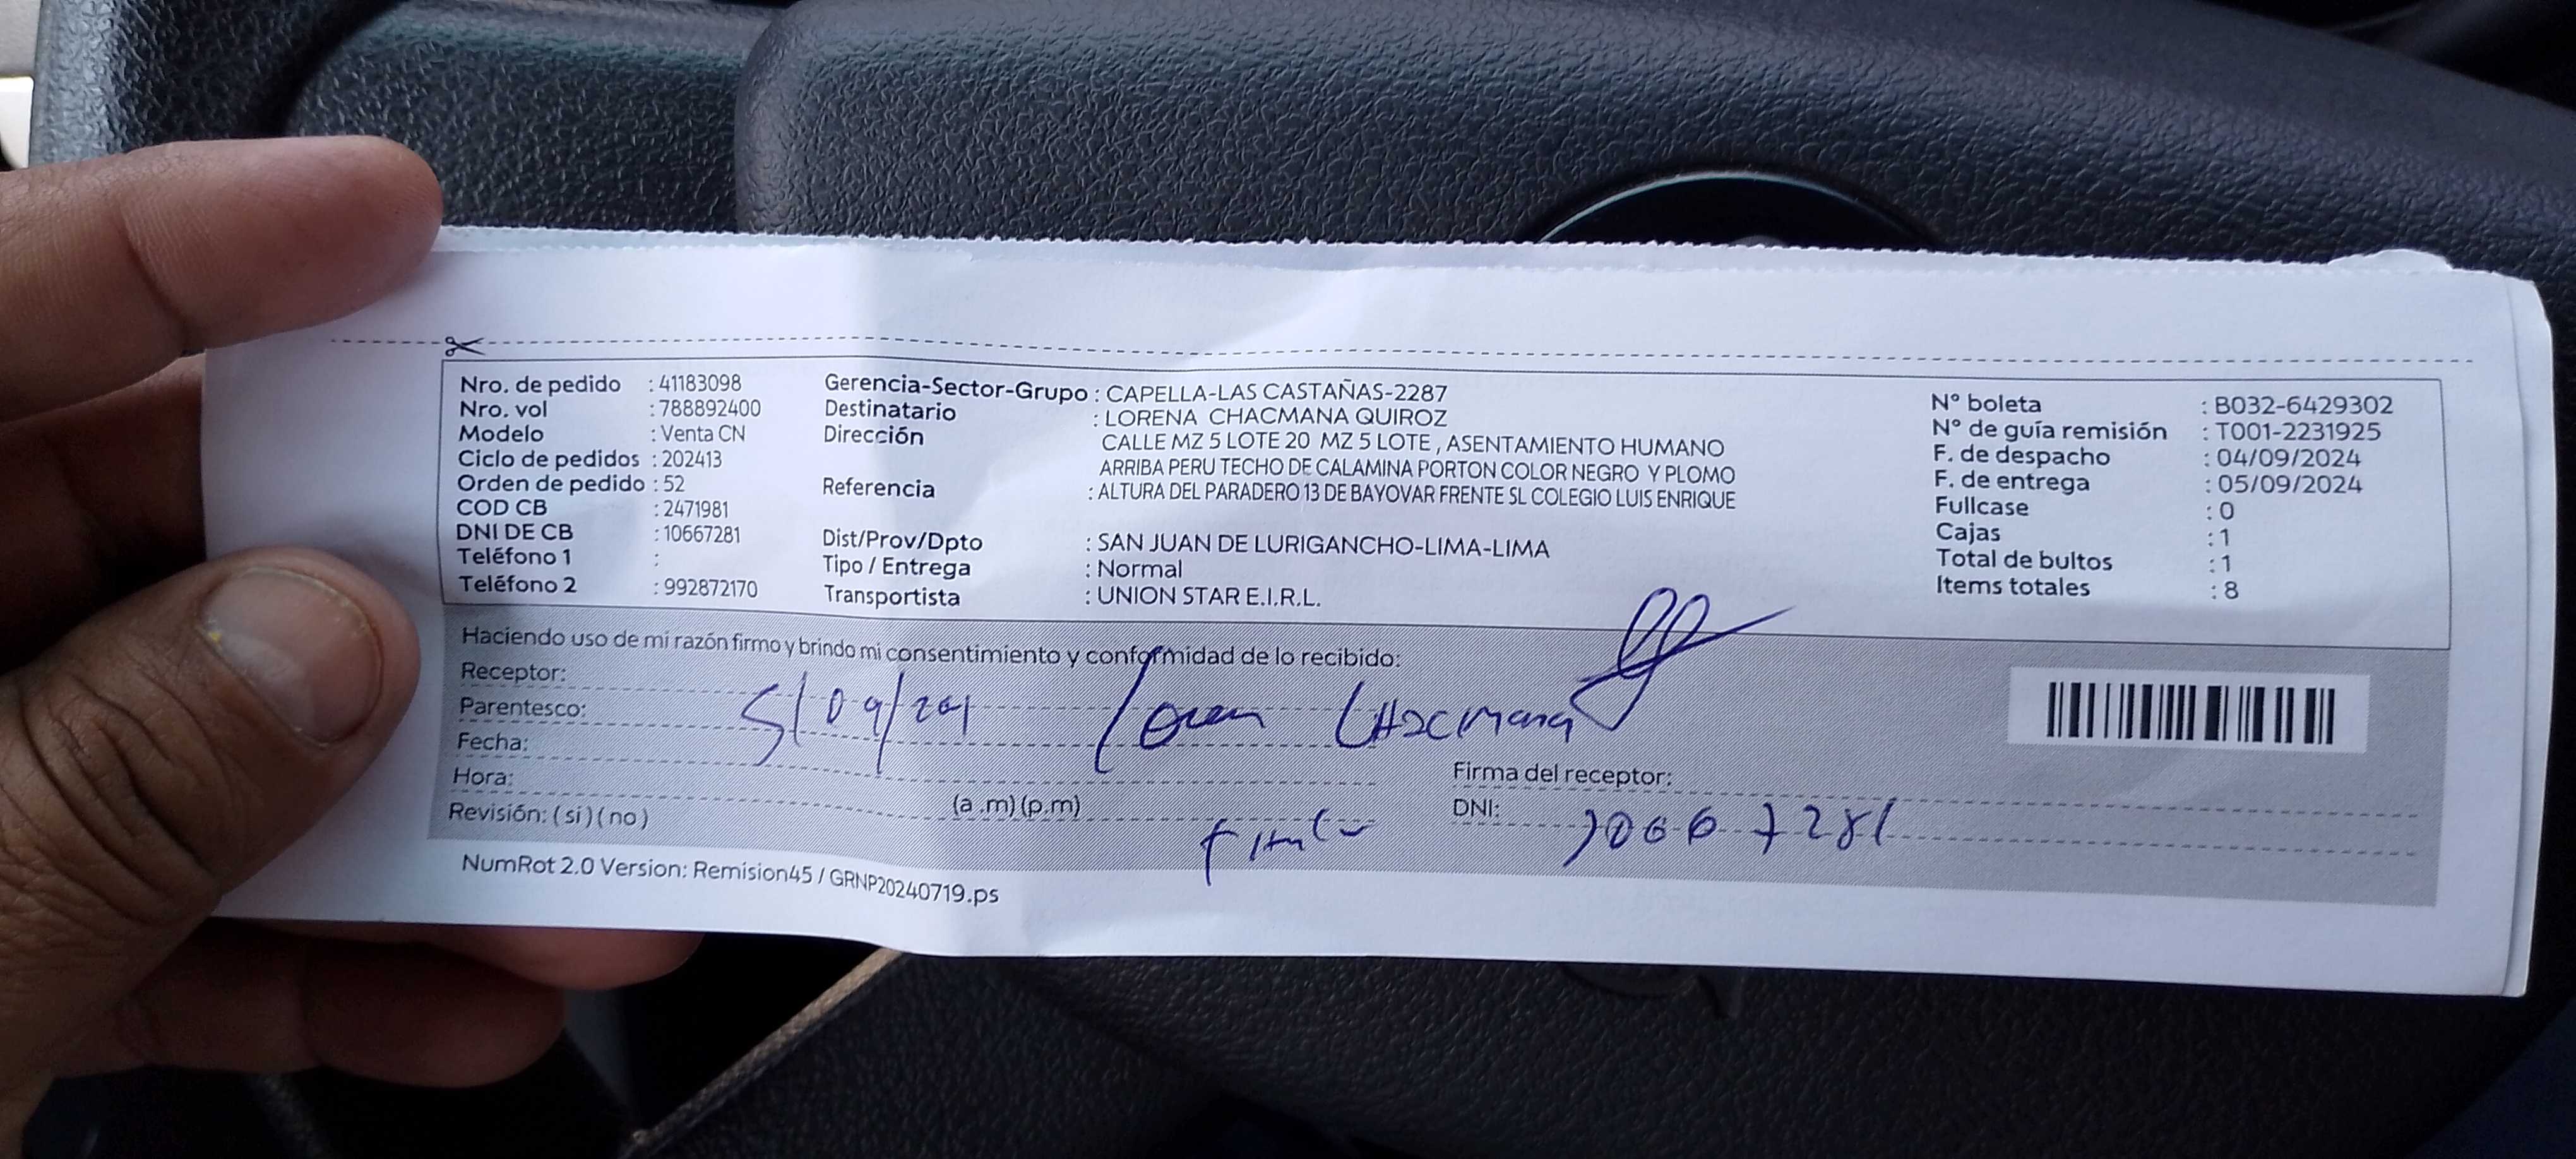 Nro. de pedido : 41183098
Nro. vol : 788892400
Modelo : Venta CN
Ciclo de pedidos : 202413
Orden de pedido : 52
COD CB : 2471981
DNI DE CB : 10667281
Teléfono 1 :
Teléfono 2 : 992872170
Gerencia-Sector-Grupo : CAPELLA-LAS CASTAÑAS-2287
Destinatario : LORENA CHACMANA QUIROZ
Dirección CALLE MZ 5 LOTE 20 MZ 5 LOTE , ASENTAMIENTO HUMANO
ARRIBA PERU TECHO DE CALAMINA PORTON COLOR NEGRO Y PLOMO
Referencia : ALTURA DEL PARADERO 13 DE BAYOVAR FRENTE SL COLEGIO LUIS ENRIQUE
Dist/Prov/Dpto : SAN JUAN DE LURIGANCHO-LIMA-LIMA
Tipo / Entrega : Normal
Transportista : UNION STAR E.I.R.L.
N° boleta : B032-6429302
N° de guía remisión : T001-2231925
F. de despacho : 04/09/2024
F. de entrega : 05/09/2024
Fullcase : 0
Cajas : 1
Total de bultos : 1
Items totales : 8
Haciendo uso de mi razón firmo y brindo mi consentimiento y conformidad de lo recibido:
Receptor:
Parentesco: 5/09/24 Chacmana
Fecha:
Hora: (a .m) (p.m)
Revisión: ( si ) ( no )
Firma del receptor:
DNI: 10667281
NumRot 2.0 Version: Remision45 / GRNP20240719.ps